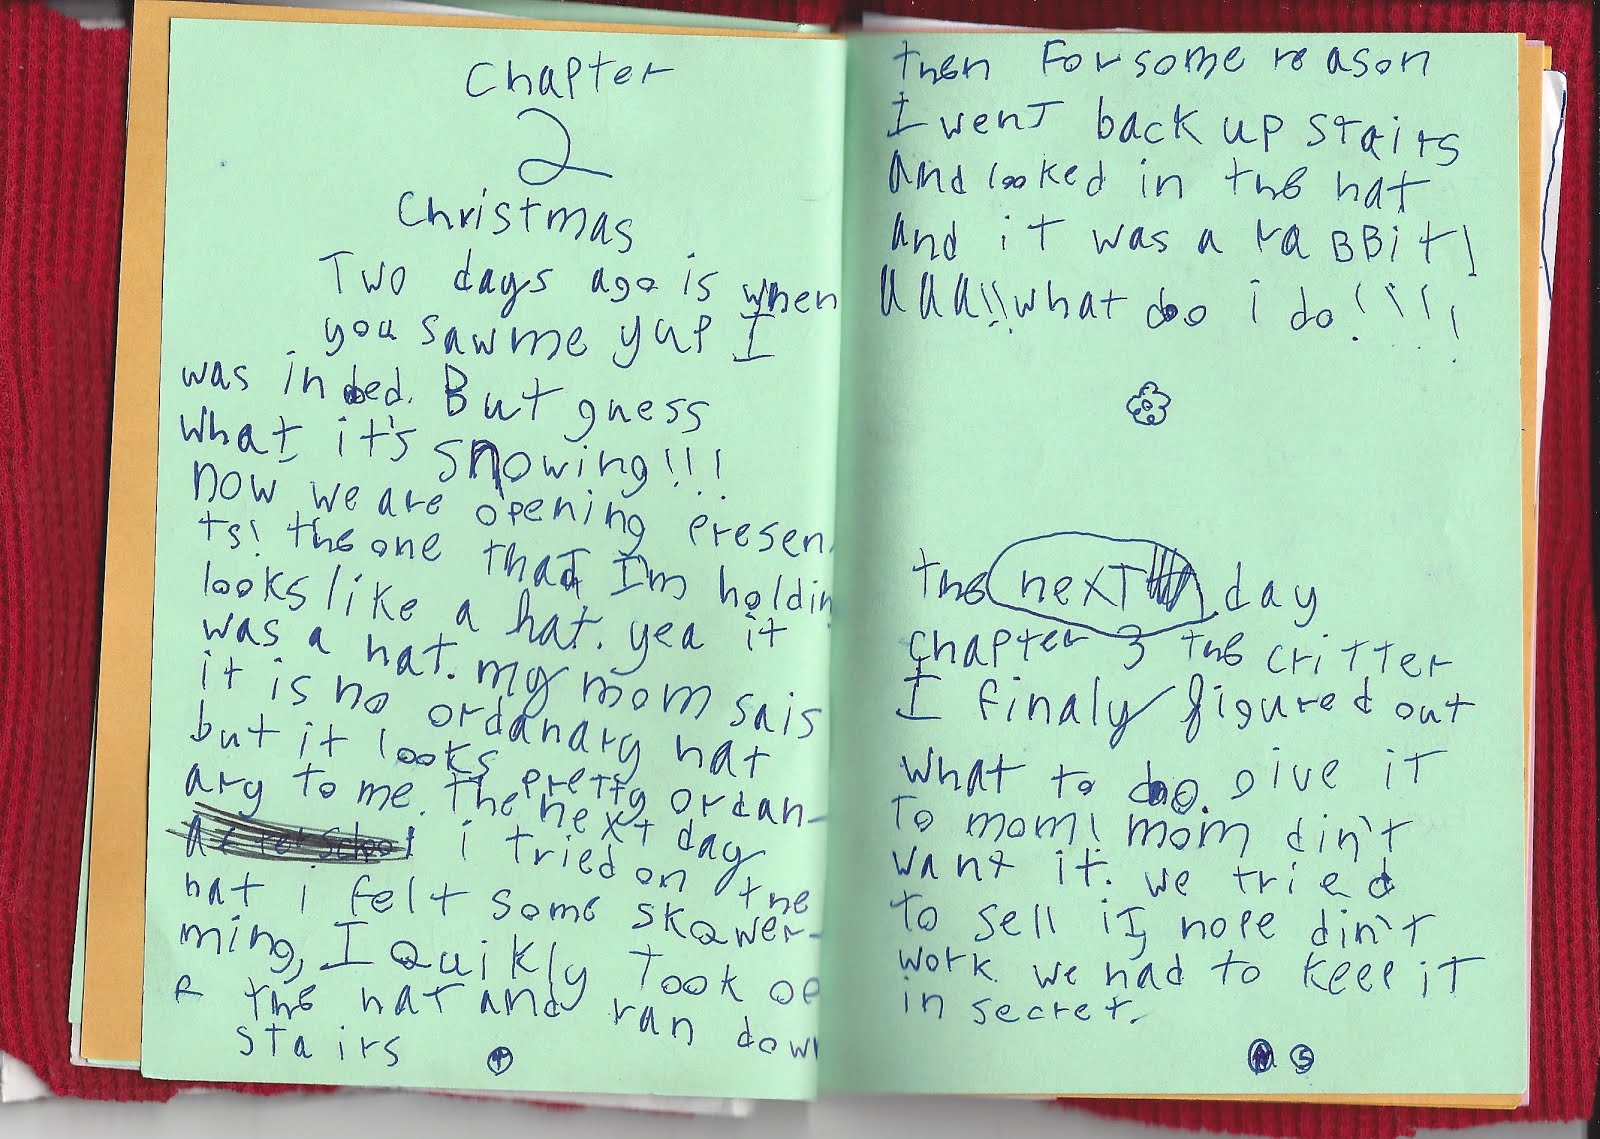 Chapter
2
Christmas
Two days ago is when
you saw me yup I
was in bed. But guess
what it's snowing!!!
now we are opening presen
ts! the one that I'm holdin
looks like a hat. yea it
was a hat. my mom sais
it is no ordanary hat
but it looks pretty ordan-
ary to me. The next day
i tried on the
hat i felt some skqwer-
ming, I quikly took of
f the hat and ran down
stairs
4
then For some reason
I went back up stairs
and looked in the hat
and it was a raBBit!
aaa!!what do i do!!!!
the next day
chapter 3 the critter
I finaly figured out
what to do. give it
to mom! mom din't
want it. we tried
to sell it, nope din't
work. we had to keep it
in secret.
5